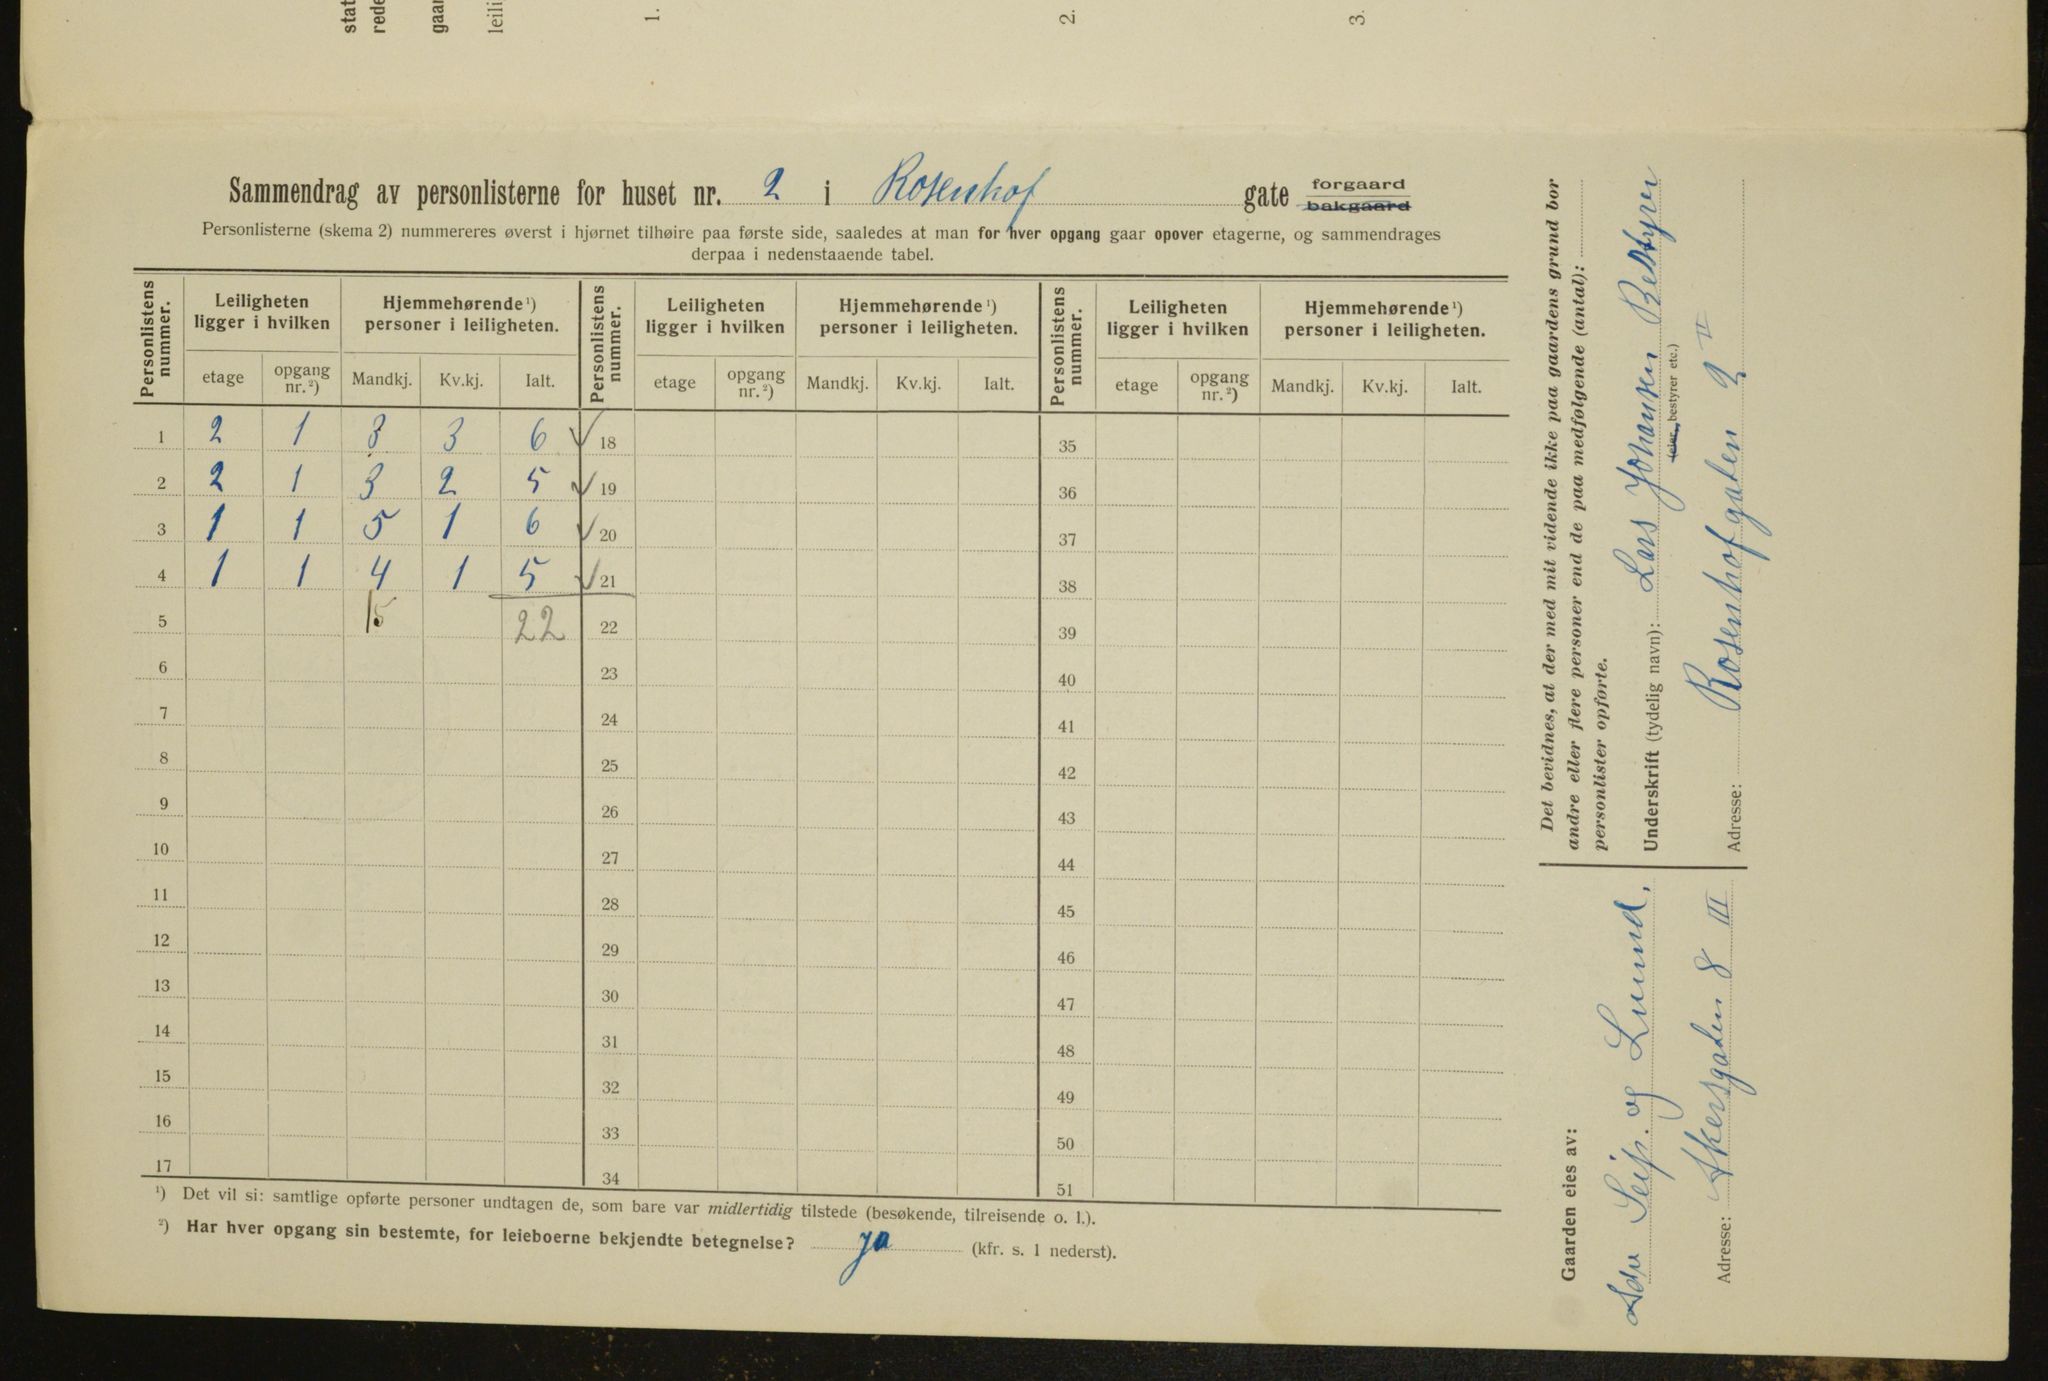 stat
rede
gaar
leili
1.
2.
3.
Sammendrag av personlisterne for huset nr. 2 i Rosenhof gate forgaard
bakgaard
Personlisterne (skema 2) nummereres øverst i hjørnet tilhøire paa første side, saaledes at man for hver opgang gaar opover etagerne, og sammendrages
derpaa i nedenstaaende tabel.
Personlistens nummer. Leiligheten ligger i hvilken Hjemmehørende ¹) personer i leiligheten. Personlistens nummer. Leiligheten ligger i hvilken Hjemmehørende ¹) personer i leiligheten. Personlistens nummer. Leiligheten ligger i hvilken Hjemmehørende ¹) personer i leiligheten.
etage opgang nr. ²) Mandkj. Kv.kj. Ialt. etage opgang nr. ²) Mandkj. Kv.kj. Ialt. etage opgang nr. ²) Mandkj. Kv.kj. Ialt.
1 2 1 3 3 6 ✓ 18 35
2 2 1 3 2 5 ✓ 19 36
3 1 1 5 1 6 ✓ 20 37
4 1 1 4 1 5 ✓ 21 38
5 15 22 22 39
6 23 40
7 24 41
8 25 42
9 26 43
10 27 44
11 28 45
12 29 46
13 30 47
14 31 48
15 32 49
16 33 50
17 34 51
¹) Det vil si: samtlige opførte personer undtagen de, som bare var midlertidig tilstede (besøkende, tilreisende o. l.).
²) Har hver opgang sin bestemte, for leieboerne bekjendte betegnelse? ja (kfr. s. 1 nederst).
Det bevidnes, at der med mit vidende ikke paa gaardens grund bor
andre eller flere personer end de paa medfølgende (antal):
personlister opførte.
Underskrift (tydelig navn): Lars Johansen Bestyrer
(eier, bestyrer etc.)
Adresse: Rosenhofgaten 2 II
Gaarden eies av:
Seip. og Lund.
Adresse: Akersgaten 8 III